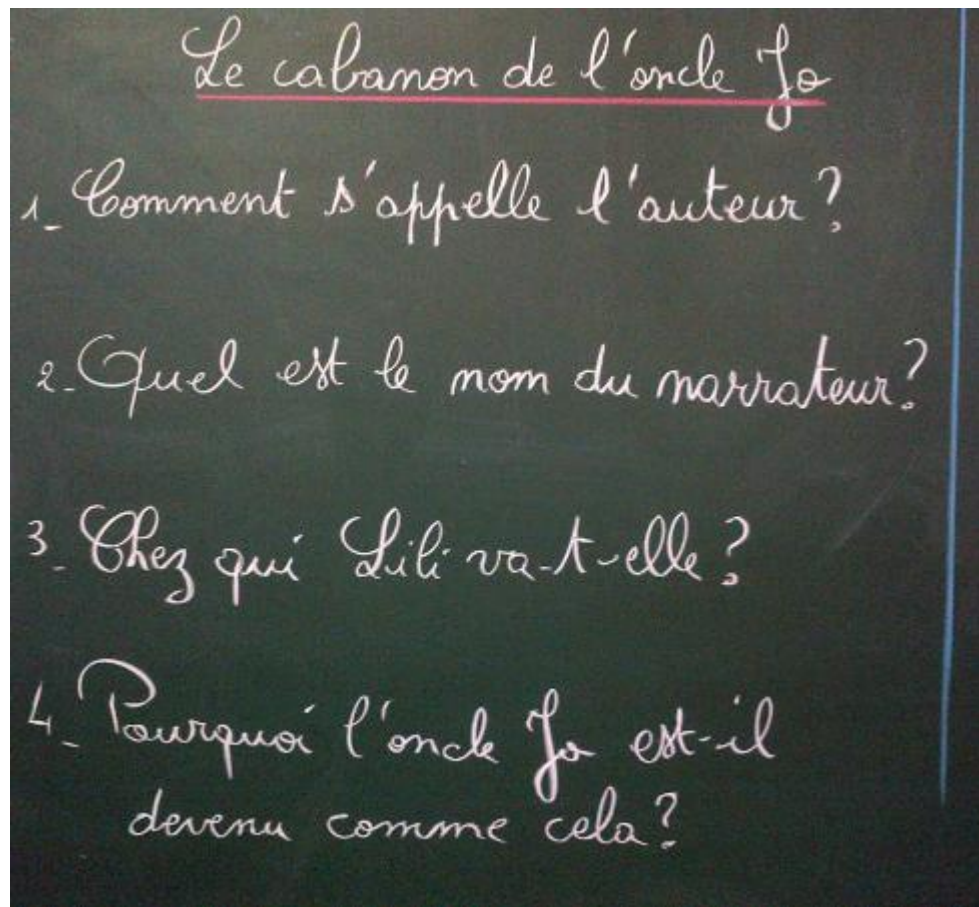 Le cabanon de l'oncle Jo
1_ Comment s'appelle l'auteur?
2_ Quel est le nom du narrateur?
3_ Chez qui Lili va-t-elle?
4_ Pourquoi l'oncle Jo est-il
devenu comme cela?